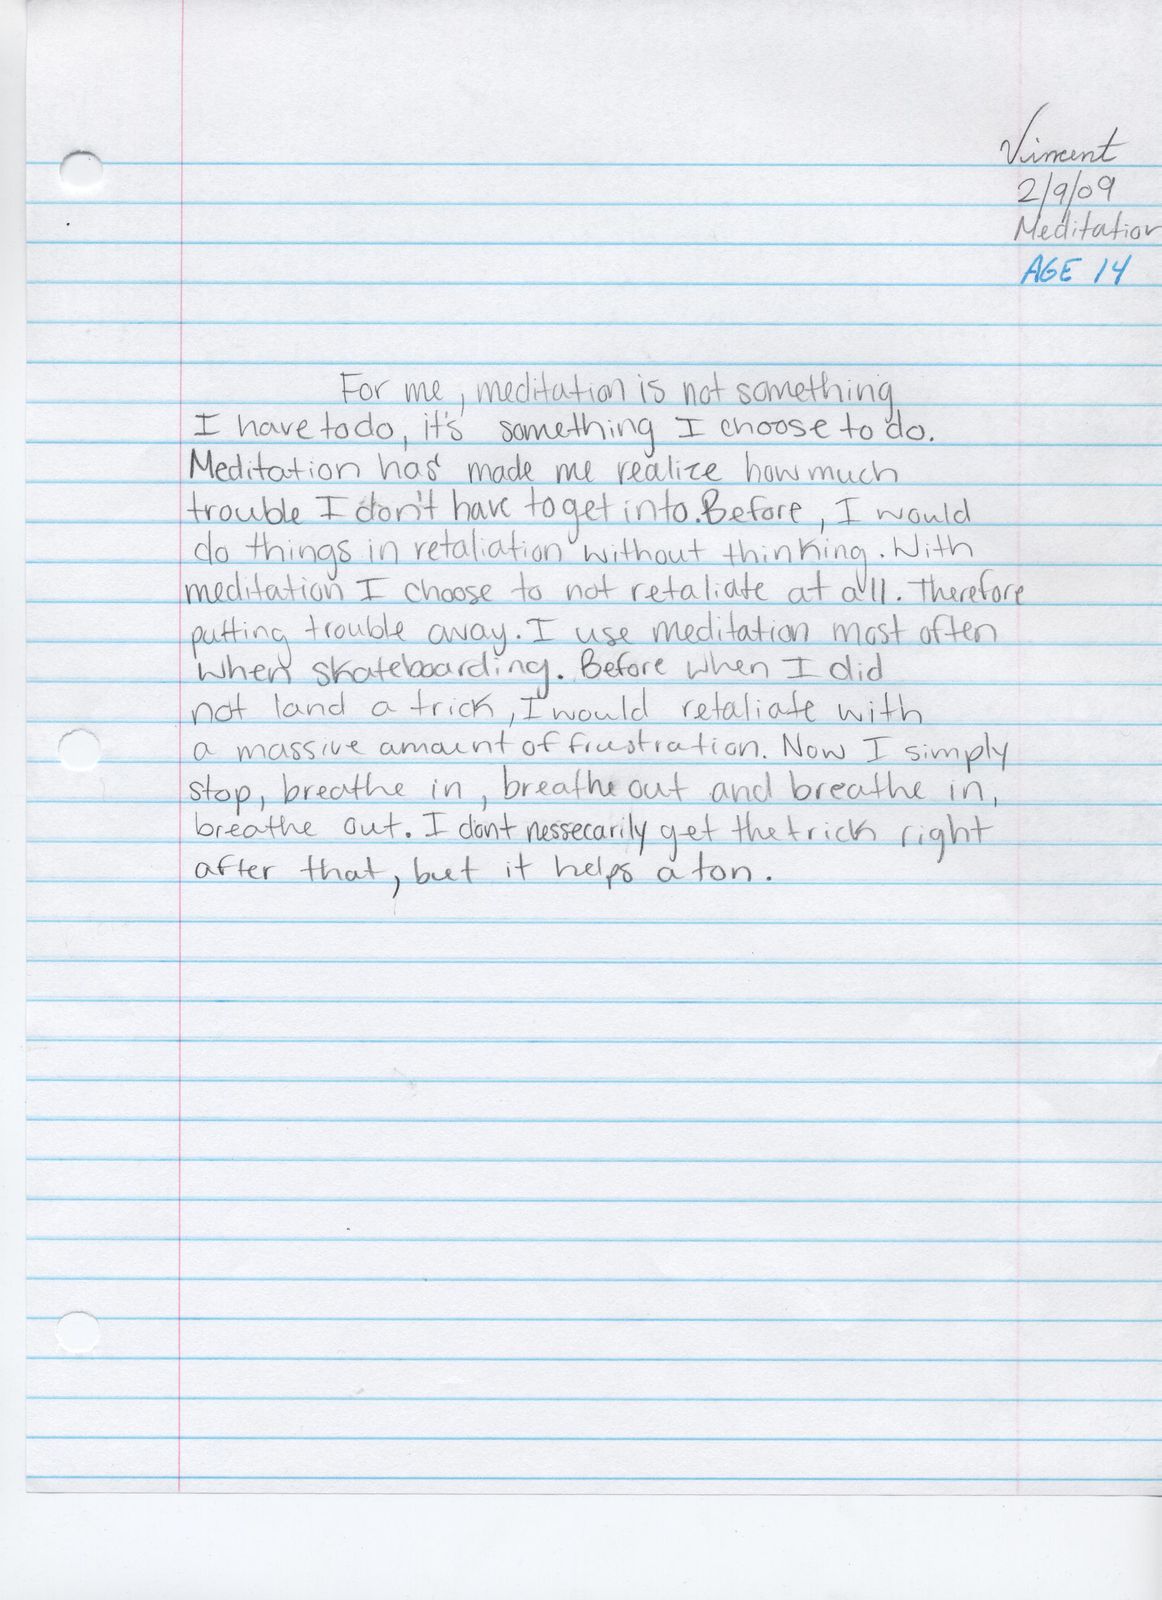 Vincent
2/9/09
Meditation
AGE 14
For me, meditation is not something
I have to do, it's something I choose to do.
Meditation has made me realize how much
trouble I don't have to get into. Before, I would
do things in retaliation without thinking. With
meditation I choose to not retaliate at all. Therefore
putting trouble away. I use meditation most often
when skateboarding. Before when I did
not land a trick, I would retaliate with
a massive amount of frustration. Now I simply
stop, breathe in, breathe out and breathe in,
breathe out. I dont nessecarily get the trick right
after that, but it helps a ton.